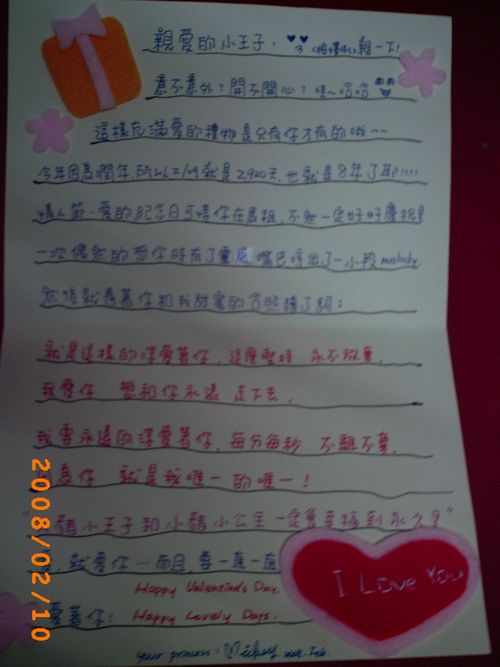 親愛的小王子. 親一下!
意不意外? 開不開心? 哈哈
這樣充滿愛的禮物是只有你才有的哦~~
今年因為潤年,所以2/19就是2920天,也就是8年了耶!!!!
情人節.愛的紀念日可惜你在馬祖,不然一定好好慶祝!
一次偶然的想你時有了靈感 嘴巴哼出了一小段melody.
然後就看著你和我甜蜜的合照譜了詞:
就是這樣的深愛著你, 這麼堅持 永不放棄.
我愛你 想和你永遠 走下去,
我要永遠的深愛著你,每分每秒 不離不棄.
因為你 就是我唯一的唯一!
"豬小王子和小豬小公主一定會幸福到永久!"
就愛你 一而且, 要一直一直
Happy Valentine's Day.
愛著你! Happy Lovely Days.
I Love You
your princess:
2008/02/10